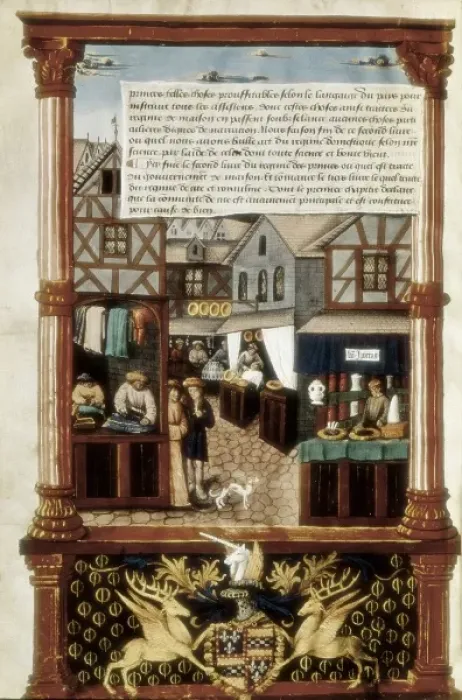 princes telles choses prouffitables selon le langaige du pays pour
instruire tous les assistens. Donc cestes choses ainsi traitees du
regime de maison en passent soubz silence aucunes choses parti
culieres dignes de narration. Nous faison fin de ce second livre
ou quel nous avons baille art du regime domestique selon nre
science par laide de celui dont toute science et bonte vient.
Cy fine le second livre du regime des princes ou quel est traite
du gouvernemet de maison. et comance le tiers livre le quel traite
du regime de cite et royaulme. Dont le premier chapitre declaire
que la comunite de cite est aucunemet principale et est constituee
pour cause de bien.